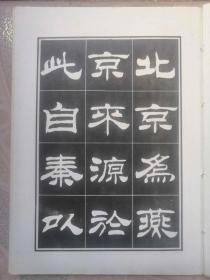 北京為燕
京來源於
此自秦以